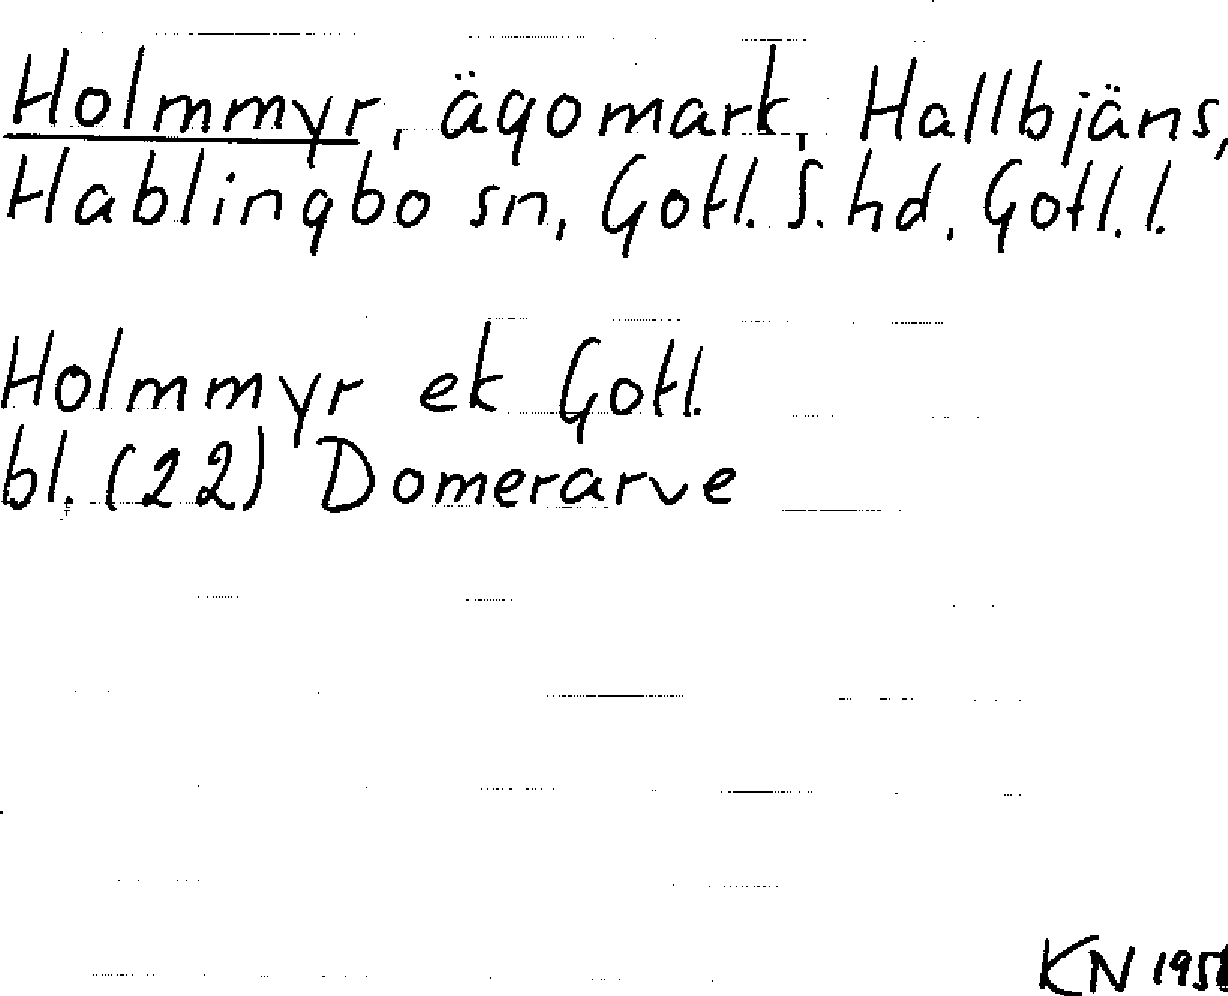 Holmmyr, ägomark, Hallbjäns,
Hablingbo sn, Gotl. S. hd, Gotl. l.
Holmmyr ek Gotl.
bl. (22) Domerarve
KN